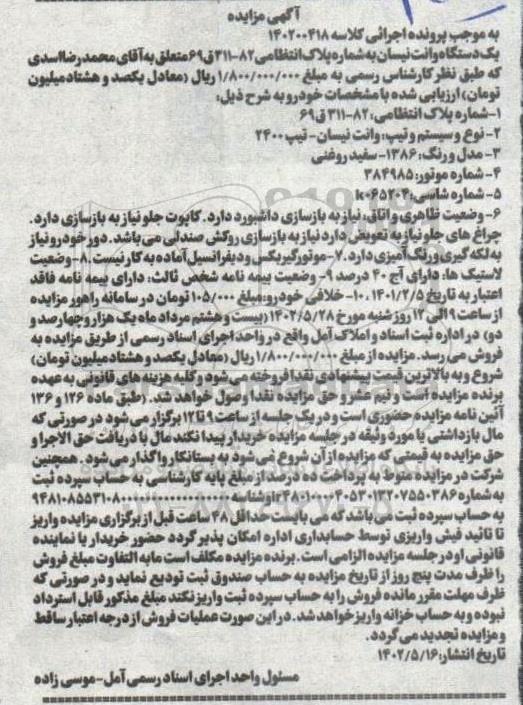 آگهی مزایده
به موجب پرونده اجرائی کلاسه ۱۴۰۲۰۰۴۱۸
یک دستگاه وانت نیسان به شماره پلاک انتظامی ۸۲-۳۱۱ق۶۹ متعلق به آقای محمدرضا اسدی
که طبق نظر کارشناس رسمی به مبلغ ۱/۸۰۰/۰۰۰/۰۰۰ ریال (معادل یکصد و هشتاد میلیون
تومان) ارزیابی شده با مشخصات خودرو به شرح ذیل:
۱-شماره پلاک انتظامی: ۸۲-۳۱۱ق۶۹
۲- نوع و سیستم و تیپ: وانت نیسان- تیپ ۲۴۰۰
۳- مدل و رنگ: ۱۳۸۶- سفید روغنی
۴- شماره موتور: ۳۸۴۹۸۵
۵- شماره شاسی: k۰۶۵۲۰۴
۶- وضعیت ظاهری و اتاق: نیاز به بازسازی داشبورد دارد. کاپوت جلو نیاز به بازسازی دارد.
چراغ های جلو نیاز به تعویض دارد نیاز به بازسازی روکش صندلی می باشد. دور خودرو نیاز
به لکه گیری و رنگ آمیزی دارد. ۷- موتور گیربکس و دیفرانسیل آماده به کار نیست. ۸- وضعیت
لاستیک ها: دارای آج ۴۰ درصد ۹- وضعیت بیمه نامه شخص ثالث: دارای بیمه نامه فاقد
اعتبار به تاریخ ۱۴۰۱/۲/۵. ۱۰- خلافی خودرو: مبلغ ۱۰۵/۰۰۰ تومان در سامانه راهور مزایده
از ساعت ۹ الی ۱۲ روز شنبه مورخ ۱۴۰۲/۵/۲۸ (بیست و هشتم مرداد ماه یک هزار و چهارصد و
دو) در اداره ثبت اسناد و املاک آمل واقع در واحد اجرای اسناد رسمی از طریق مزایده به
فروش می رسد. مزایده از مبلغ ۱/۸۰۰/۰۰۰/۰۰۰ ریال (معادل یکصد و هشتاد میلیون تومان)
شروع و به بالاترین قیمت پیشنهادی نقدا فروخته می شود و کلیه هزینه های قانونی به عهده
برنده مزایده است و نیم عشر و حق مزایده نقدا وصول خواهد شد. (طبق ماده ۱۲۶ و ۱۳۶
آئین نامه مزایده حضوری است و در یک جلسه از ساعت ۹ تا ۱۲ برگزار می شود در صورتی که
مال بازداشتی یا مورد وثیقه در جلسه مزایده خریدار پیدا نکند مال با دریافت حق الاجرا و
حق مزایده به قیمتی که مزایده از آن شروع می شود به بستانکار واگذار می شود. همچنین
شرکت در مزایده منوط به پرداخت ده درصد از مبلغ پایه کارشناسی به حساب سپرده ثبت
به شماره
به حساب سپرده ثبت می باشد که می بایست حداقل ۴۸ ساعت قبل از برگزاری مزایده واریز
تا تائید فیش واریزی توسط حسابداری اداره امکان پذیر گردد حضور خریدار یا نماینده
قانونی او در جلسه مزایده الزامی است. برنده مزایده مکلف است مابه التفاوت مبلغ فروش
را ظرف مدت پنج روز از تاریخ مزایده به حساب صندوق ثبت تودیع نماید و در صورتی که
ظرف مهلت مقرر مانده فروش را به حساب سپرده ثبت واریز نکند مبلغ مذکور قابل استرداد
نبوده و به حساب خزانه واریز خواهد شد. در این صورت عملیات فروش از درجه اعتبار ساقط
و مزایده تجدید می گردد.
تاریخ انتشار: ۱۴۰۲/۵/۱۶
مسئول واحد اجرای اسناد رسمی آمل- موسی زاده